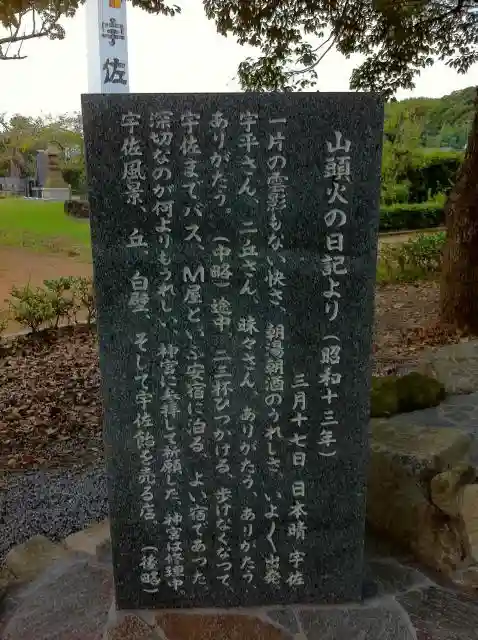 宇佐
山頭火の日記より（昭和十三年）
三月十七日 日本晴 宇佐
一片の雲影もない快さ、朝湯朝酒のうれしさ、いよ〱出発
宇平さん、二丘さん、昧々さん、ありがたう、ありがたう
ありがたう。（中略）途中、二三杯ひつかける、歩けなくなつて、
宇佐までバス、M屋といふ安宿に泊る、よい宿であつた
深切なのが何よりもうれしい、神宮に参拝して祈願した、神宮は修理中
宇佐風景、丘、白壁、そして宇佐飴を売る店、（後略）